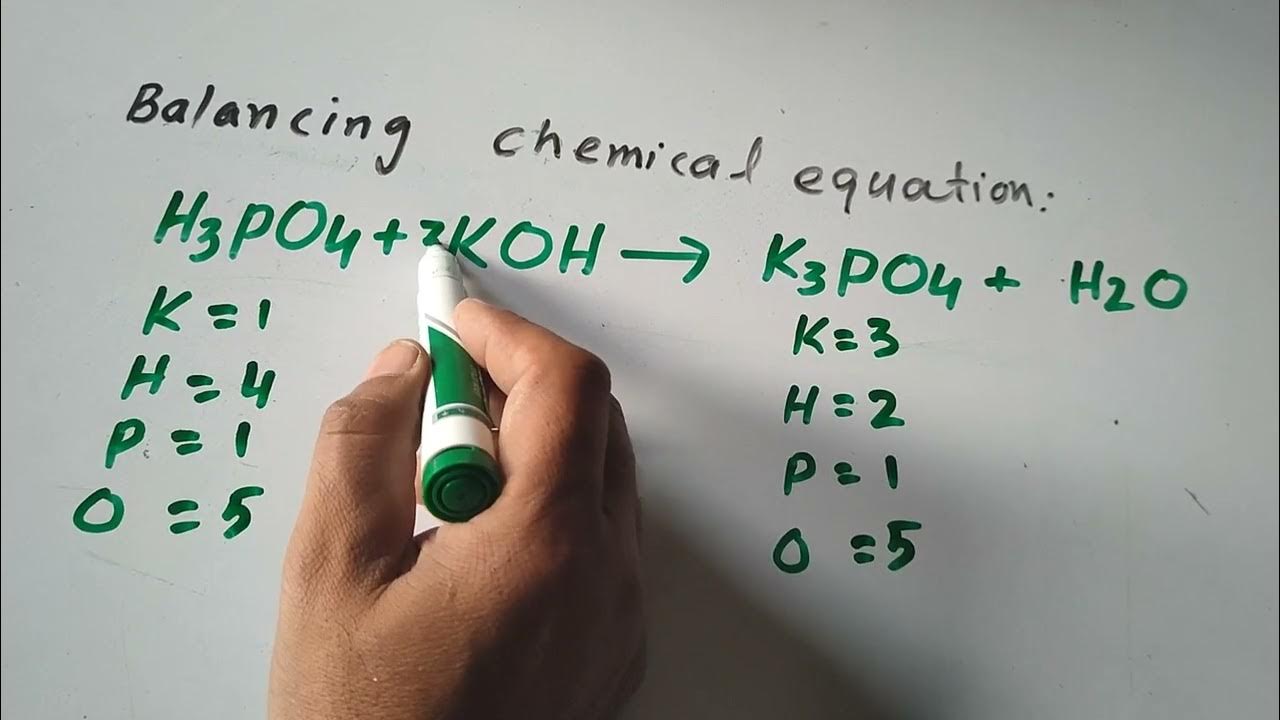 Balancing chemical equation:
H3PO4 + 3KOH → K3PO4 + H2O
K = 1
H = 4
P = 1
O = 5
K = 3
H = 2
P = 1
O = 5